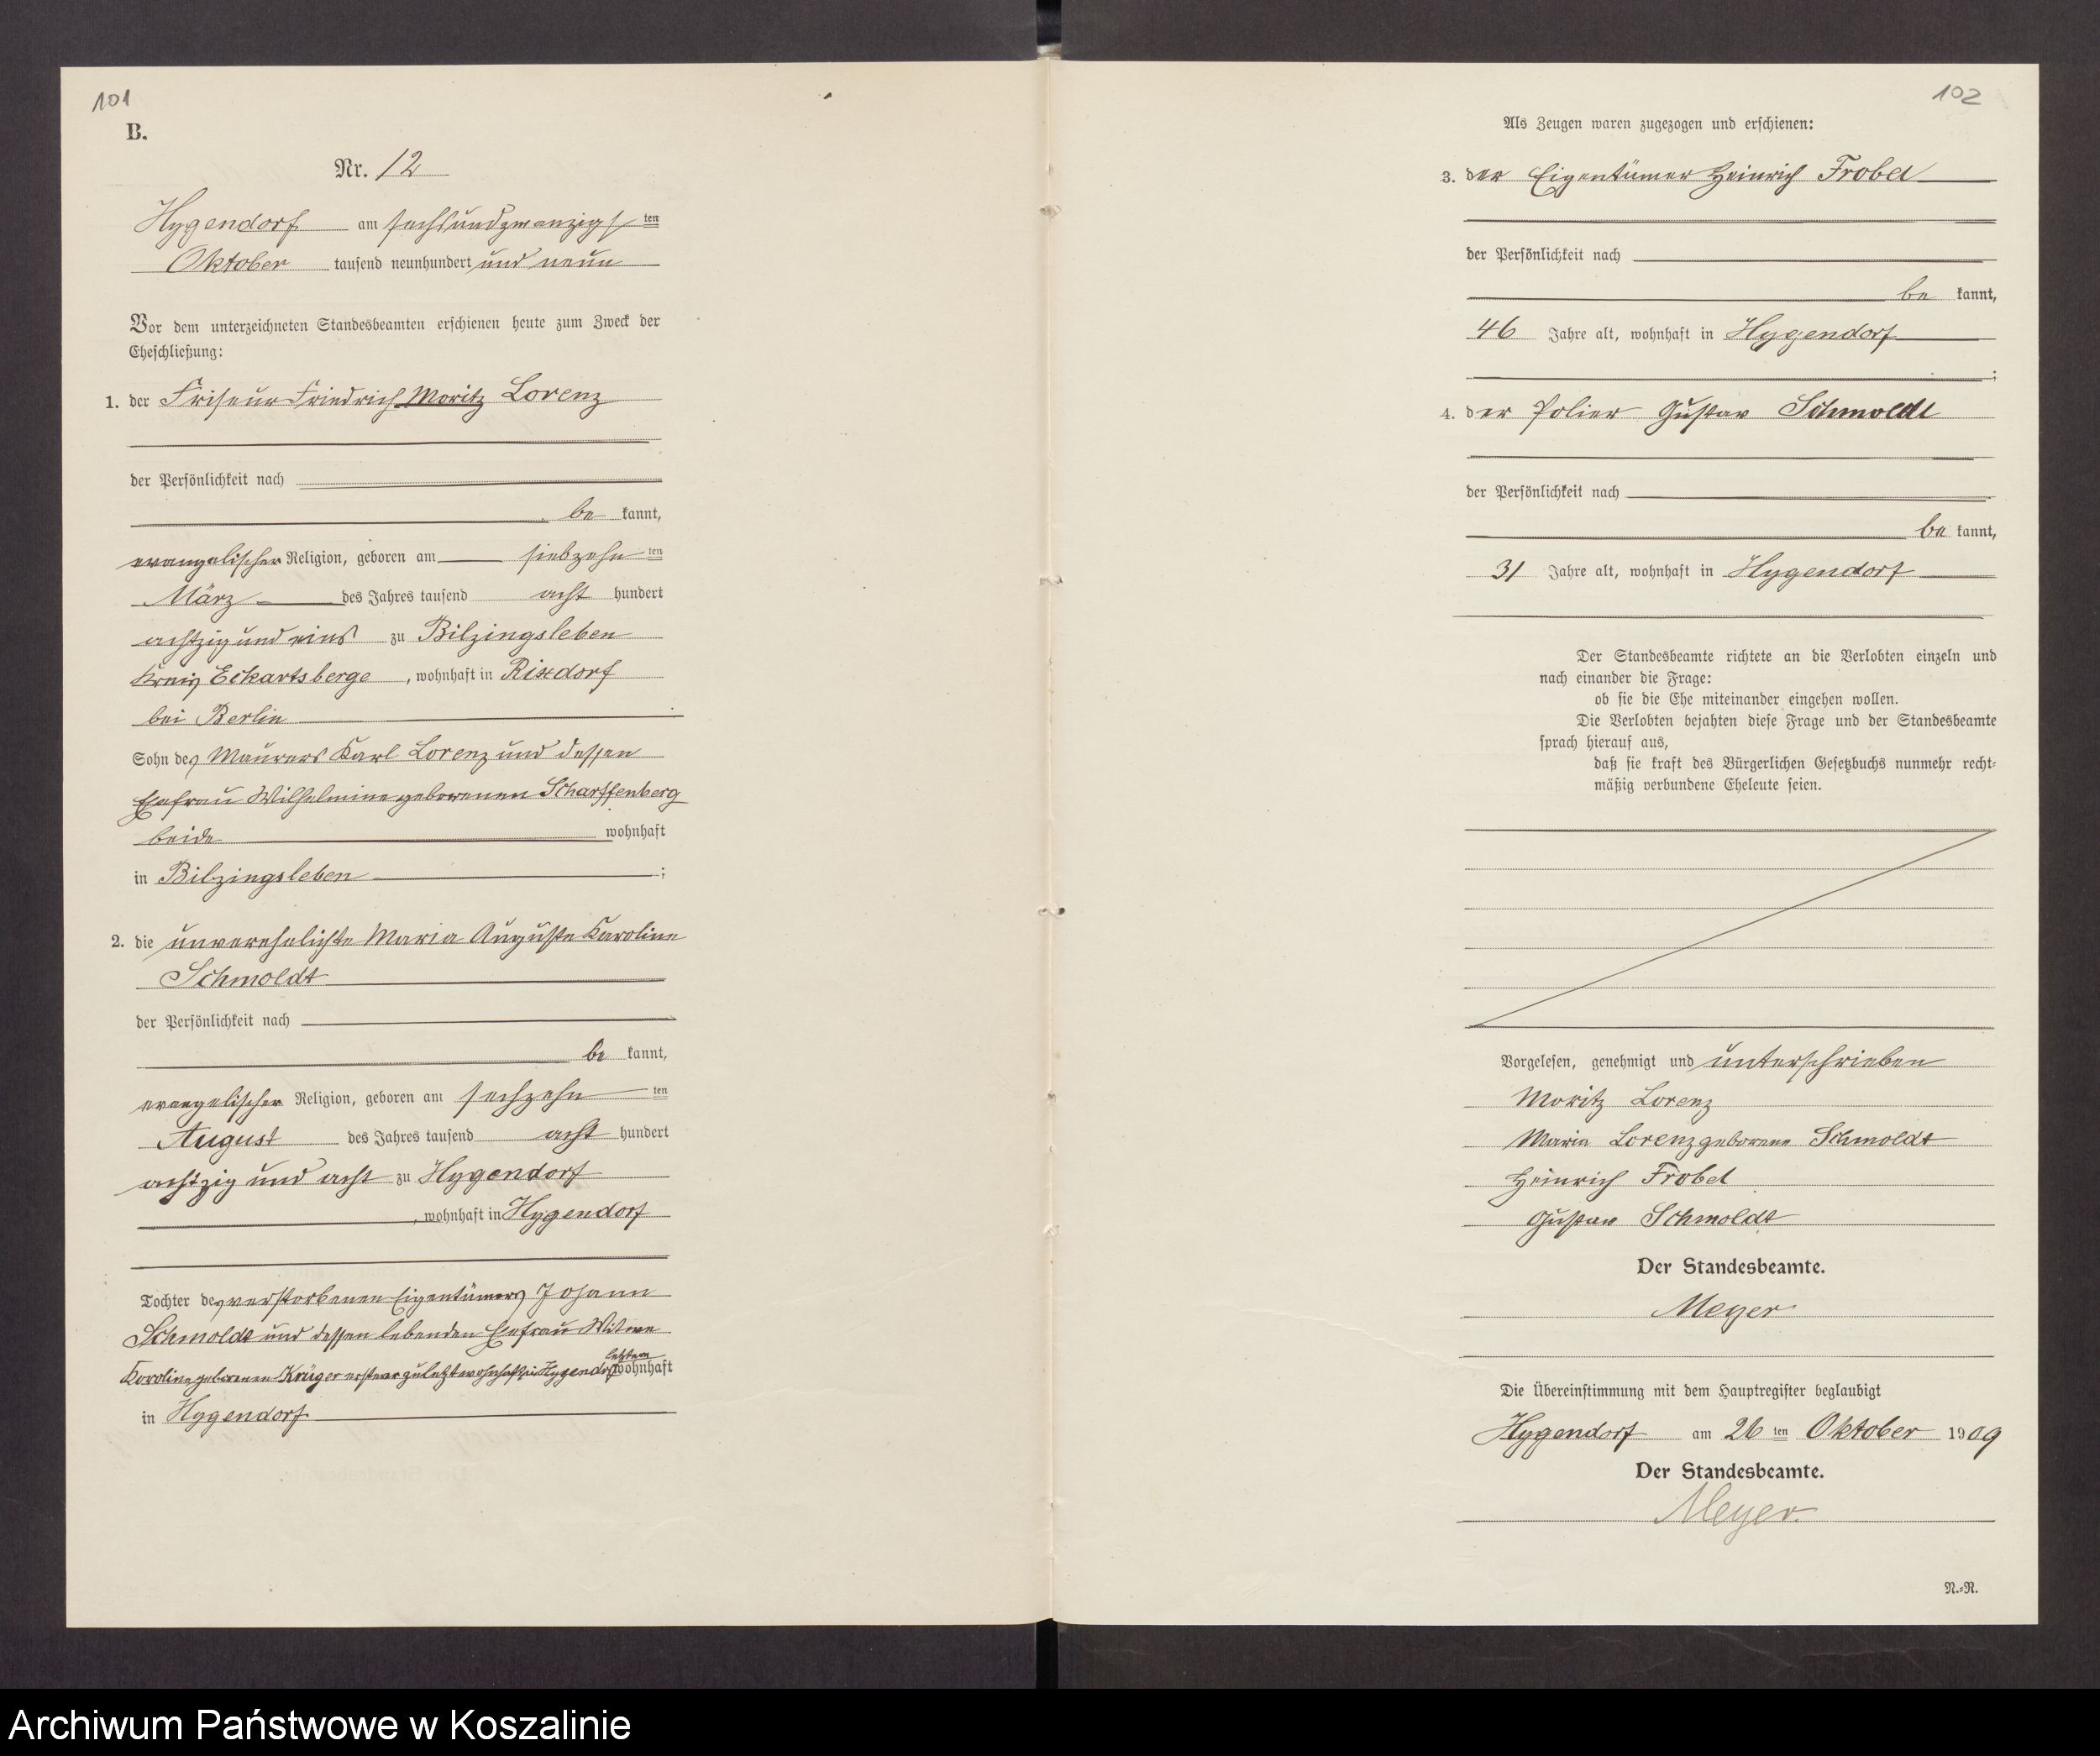 101
B.
Nr. 12
Hygendorf am sechsundzwanzigsten
Oktober tausend neunhundert und neun
Vor dem unterzeichneten Standesbeamten erschienen heute zum Zweck der
Eheschließung:
1. der Friseur Friedrich Moritz Lorenz
der Persönlichkeit nach
be kannt,
evangelischer Religion, geboren am siebzehn ten
März des Jahres tausend acht hundert
achtzig und eins zu Bilzingsleben
Kreis Eckartsberge, wohnhaft in Rixdorf
bei Berlin
Sohn des Maurers Karl Lorenz und dessen
Ehefrau Wilhelmine geborenen Scharffenberg
beide wohnhaft
in Bilzingsleben ;
2. die unverehelichte Maria Auguste Karoline
Schmoldt
der Persönlichkeit nach
be kannt,
evangelischer Religion, geboren am sechzehn ten
August des Jahres tausend acht hundert
achtzig und acht zu Hygendorf
, wohnhaft in Hygendorf
Tochter des verstorbenen Eigentümers Johann
Schmoldt und dessen lebenden Ehefrau Witwe
letztere
Karoline geborenen Krüger ersterer zuletzt wohnhaft in Hygendorf wohnhaft
in Hygendorf
102
Als Zeugen waren zugezogen und erschienen:
3. der Eigentümer Heinrich Frobel
der Persönlichkeit nach
be kannt,
46 Jahre alt, wohnhaft in Hygendorf
;
4. der Polier Gustav Schmoldt
der Persönlichkeit nach
be kannt,
31 Jahre alt, wohnhaft in Hygendorf
Der Standesbeamte richtete an die Verlobten einzeln und
nach einander die Frage:
ob sie die Ehe miteinander eingehen wollen.
Die Verlobten bejahten diese Frage und der Standesbeamte
sprach hierauf aus,
daß sie kraft des Bürgerlichen Gesetzbuchs nunmehr recht-
mäßig verbundene Eheleute seien.
Vorgelesen, genehmigt und unterschrieben
Moritz Lorenz
Maria Lorenz geborene Schmoldt
Heinrich Frobel
Gustav Schmoldt
Der Standesbeamte.
Meyer
Die Übereinstimmung mit dem Hauptregister beglaubigt
Hygendorf am 26 ten Oktober 1909
Der Standesbeamte.
Meyer.
N.-R.
Archiwum Państwowe w Koszalinie